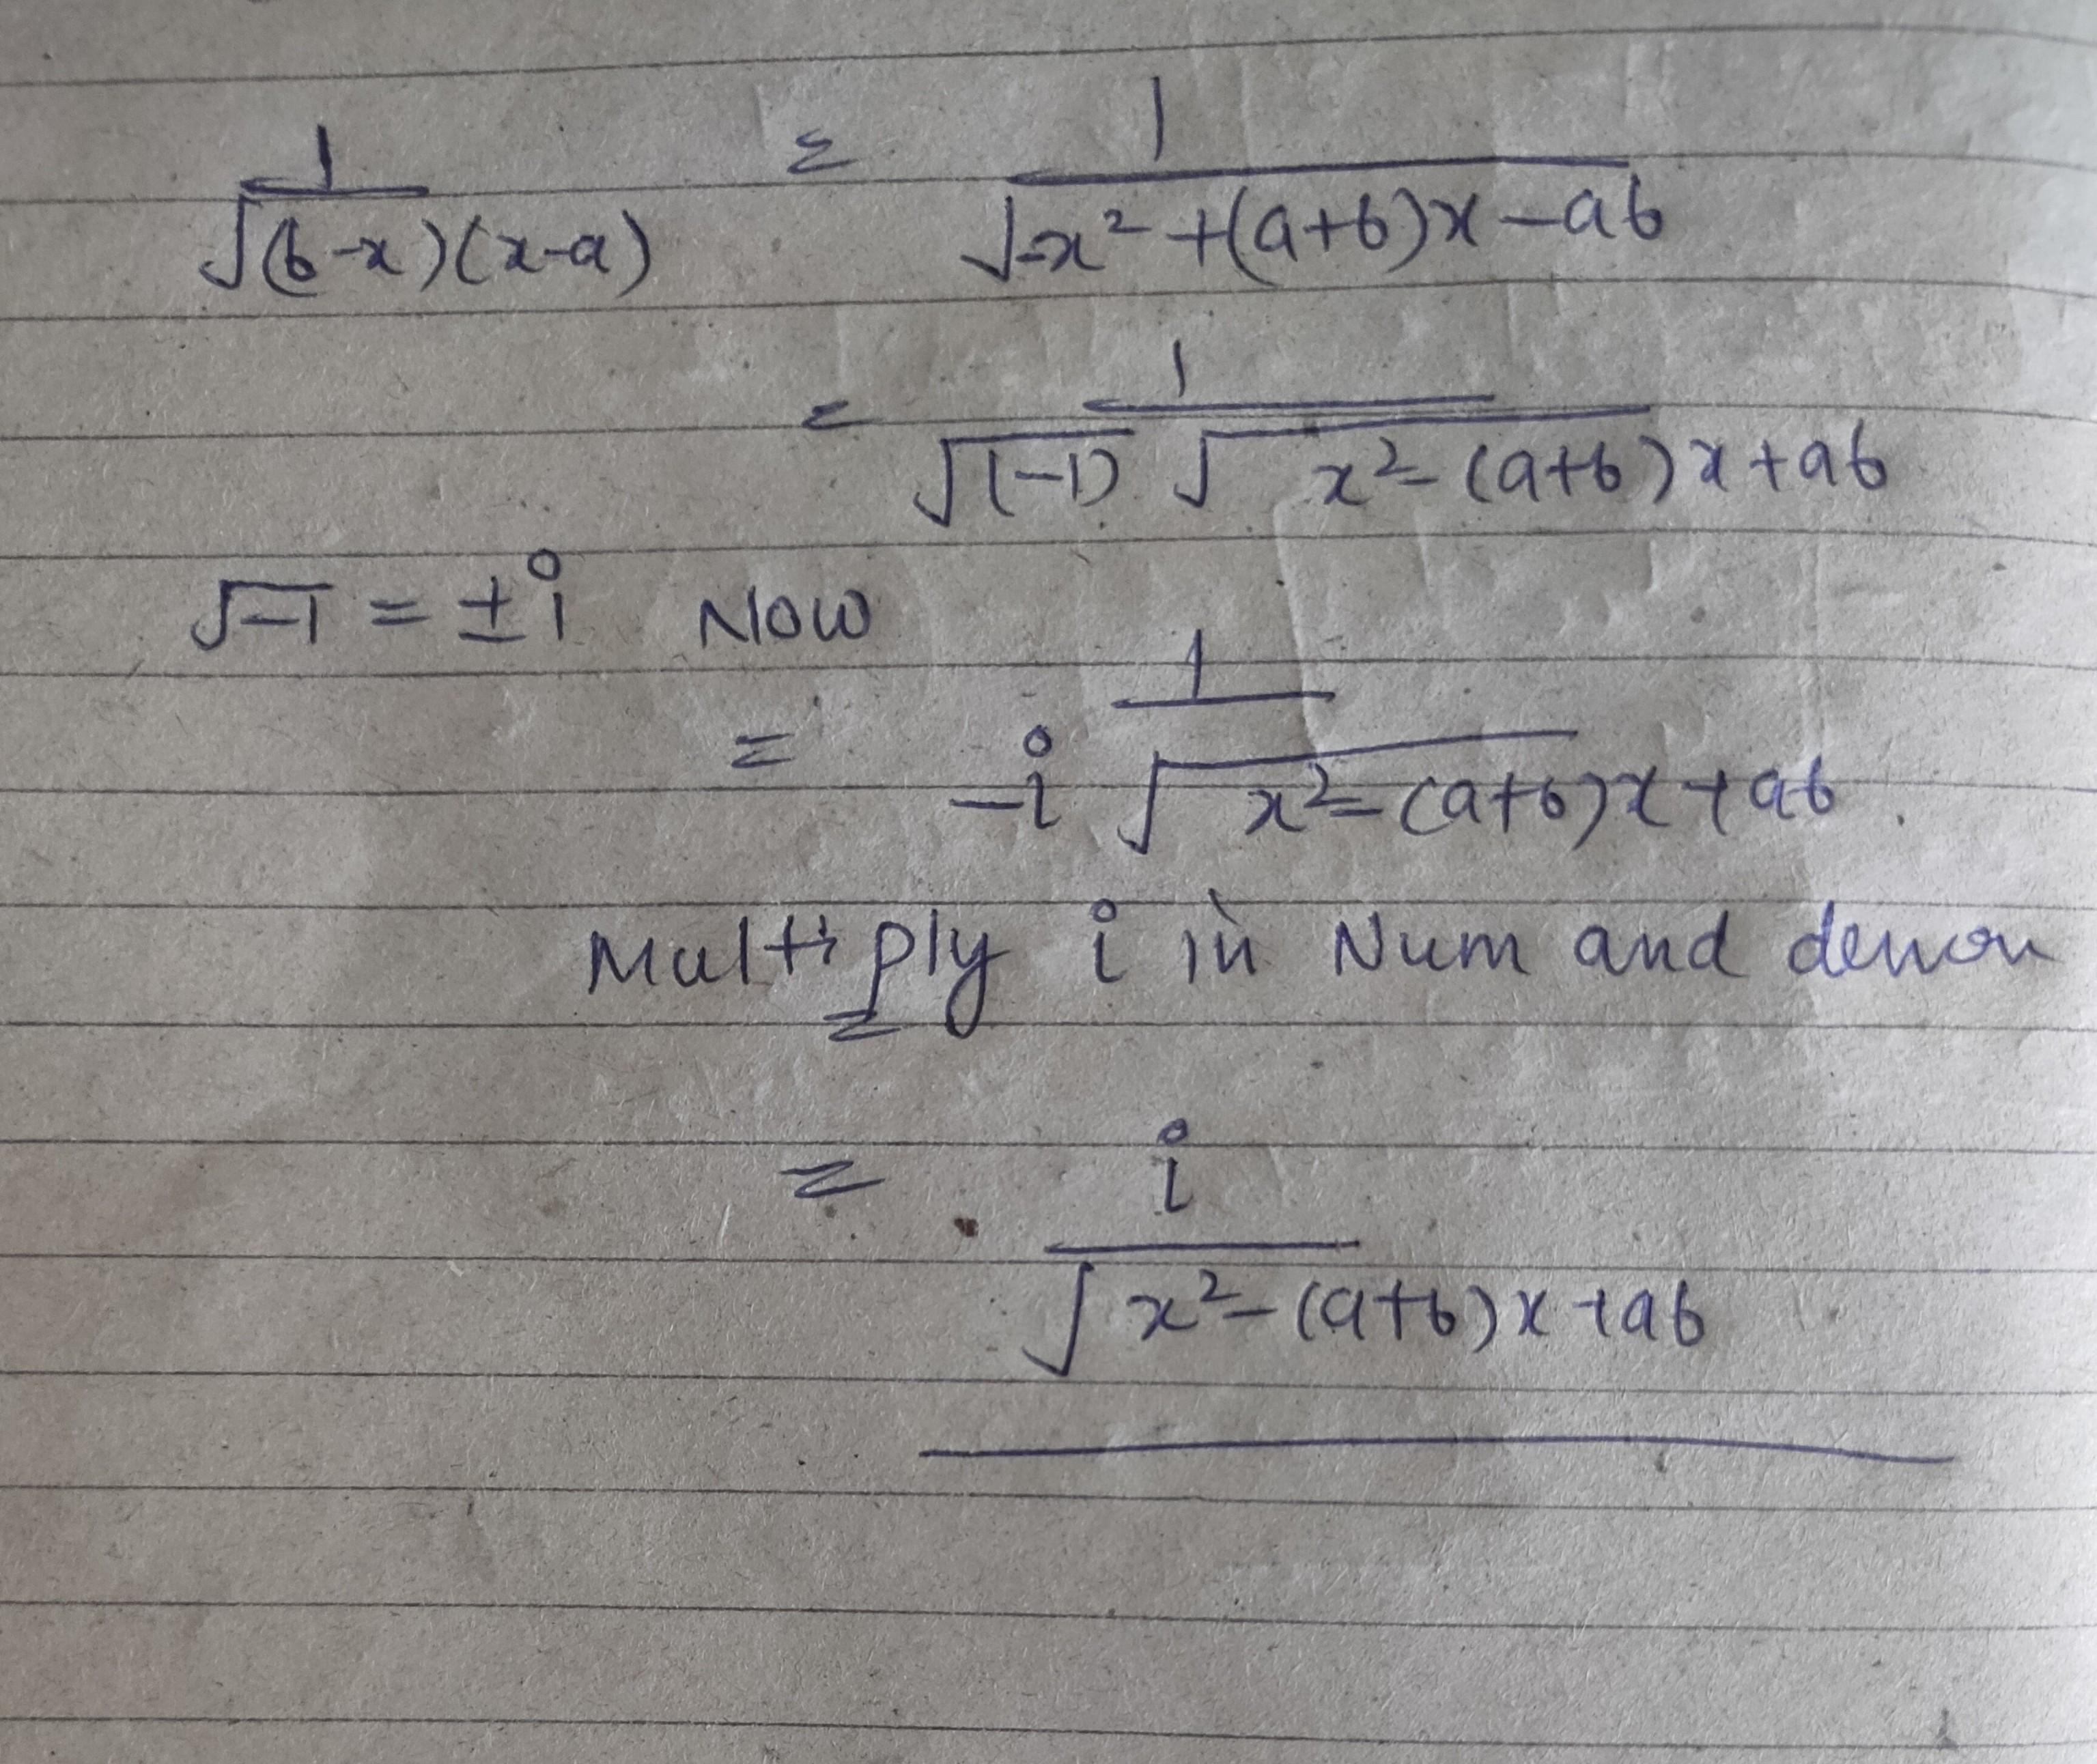 1/√(b-x)(x-a) = 1/√-x² +(a+b)x-ab
= 1/√(-1) √x²-(a+b)x+ab
√-1 = ±i Now
= 1/-i √x²-(a+b)x+ab.
Multiply i in Num and denom
= i/√x²-(a+b)x+ab